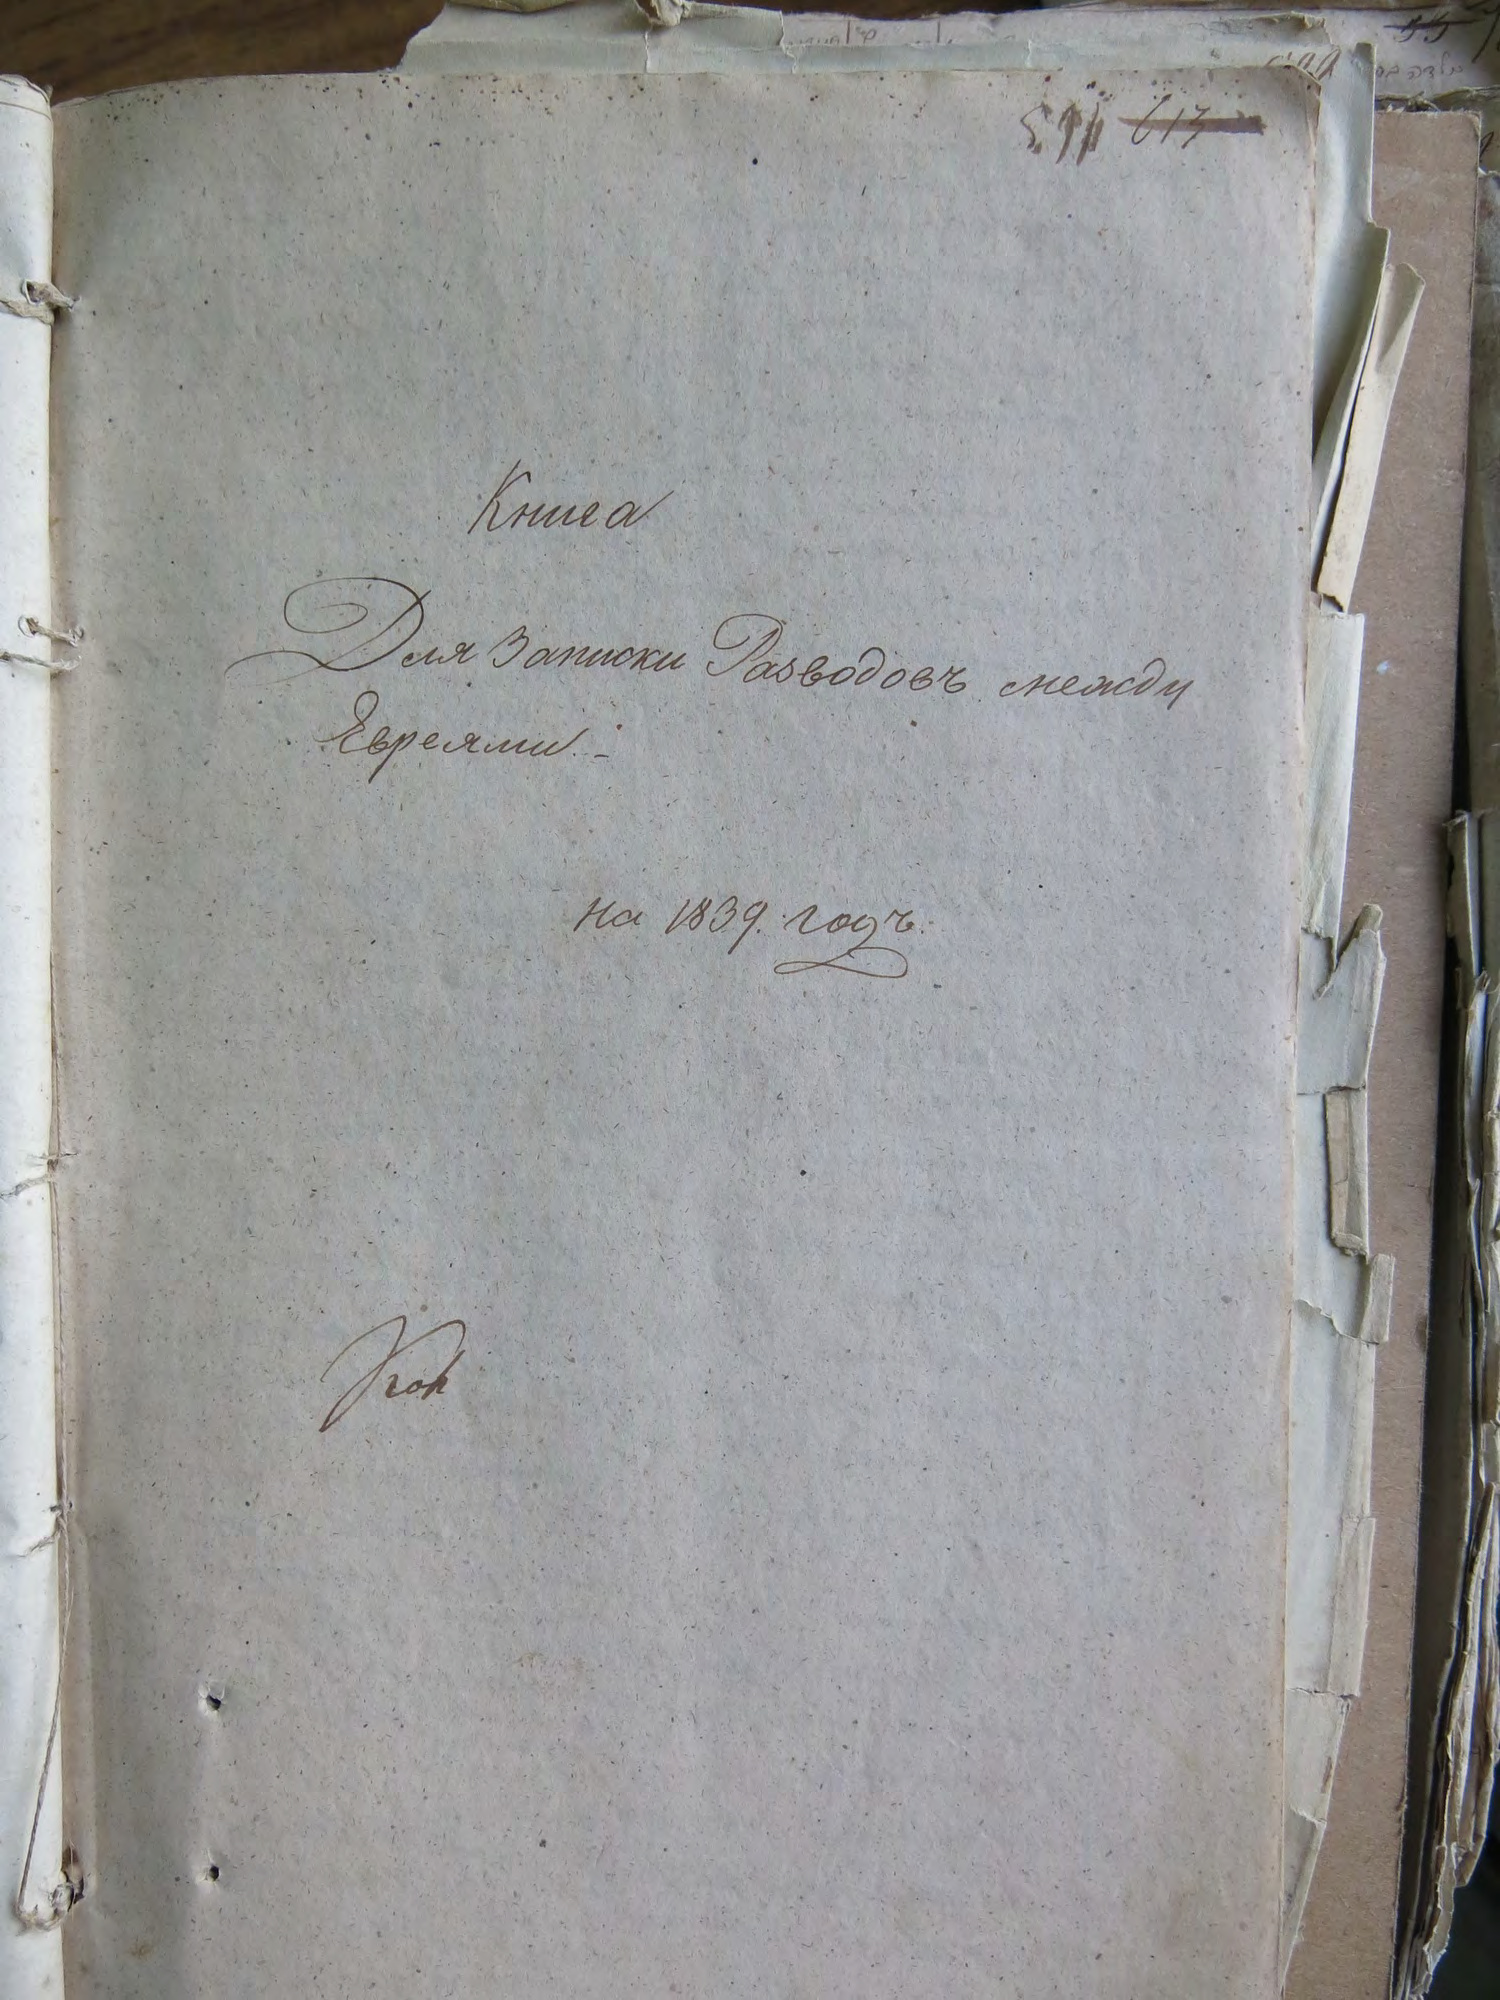 613
Книга
Для Записки Разводовъ между
Евреями. -
на 1839. годъ.